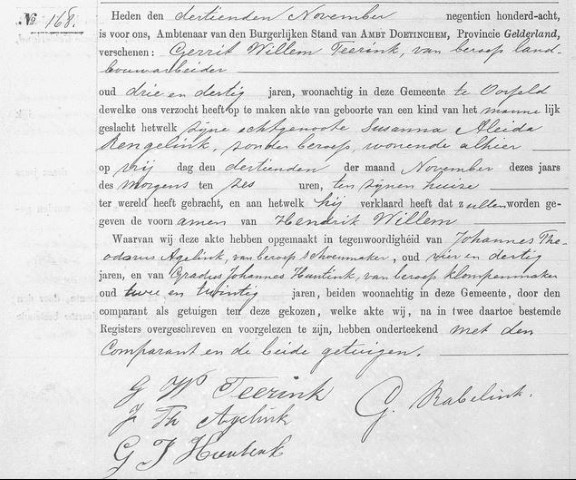 No. 168. Heden den dertienden November negentien honderd-acht,
is voor ons, Ambtenaar van den Burgerlijken Stand van AMBT DOETINCHEM, Provincie Gelderland,
verschenen: Gerrit Willem Teerink, van beroep land-
bouwarbeider
oud drie en dertig jaren, woonachtig in deze Gemeente te
dewelke ons verzocht heeft op te maken akte van geboorte van een kind van het mannelijk
geslacht hetwelk zijne echtgenoote Susanna Aleida
Rengelink, zonder beroep, wonende alhier
op vrij dag den dertienden der maand November dezes jaars
des morgens ten zes uren, ten zijnen huize
ter wereld heeft gebracht, en aan hetwelk hij verklaard heeft dat zullen worden ge-
geven de voornamen van Hendrik Willem
Waarvan wij deze akte hebben opgemaakt in tegenwoordigheid van Johannes Theo-
dorus Agelink, van beroep schoenmaker, oud vier en dertig
jaren, en van Gradus Johannes Huntink, van beroep klompenmaker
oud twee en twintig jaren, beiden woonachtig in deze Gemeente, door den
comparant als getuigen ten deze gekozen, welke akte wij, na in twee daartoe bestemde
Registers overgeschreven en voorgelezen te zijn, hebben onderteekend met den
Comparant en de beide getuigen.
G W Teerink
J Th Agelink
G. Rabelink.
G J Huntink